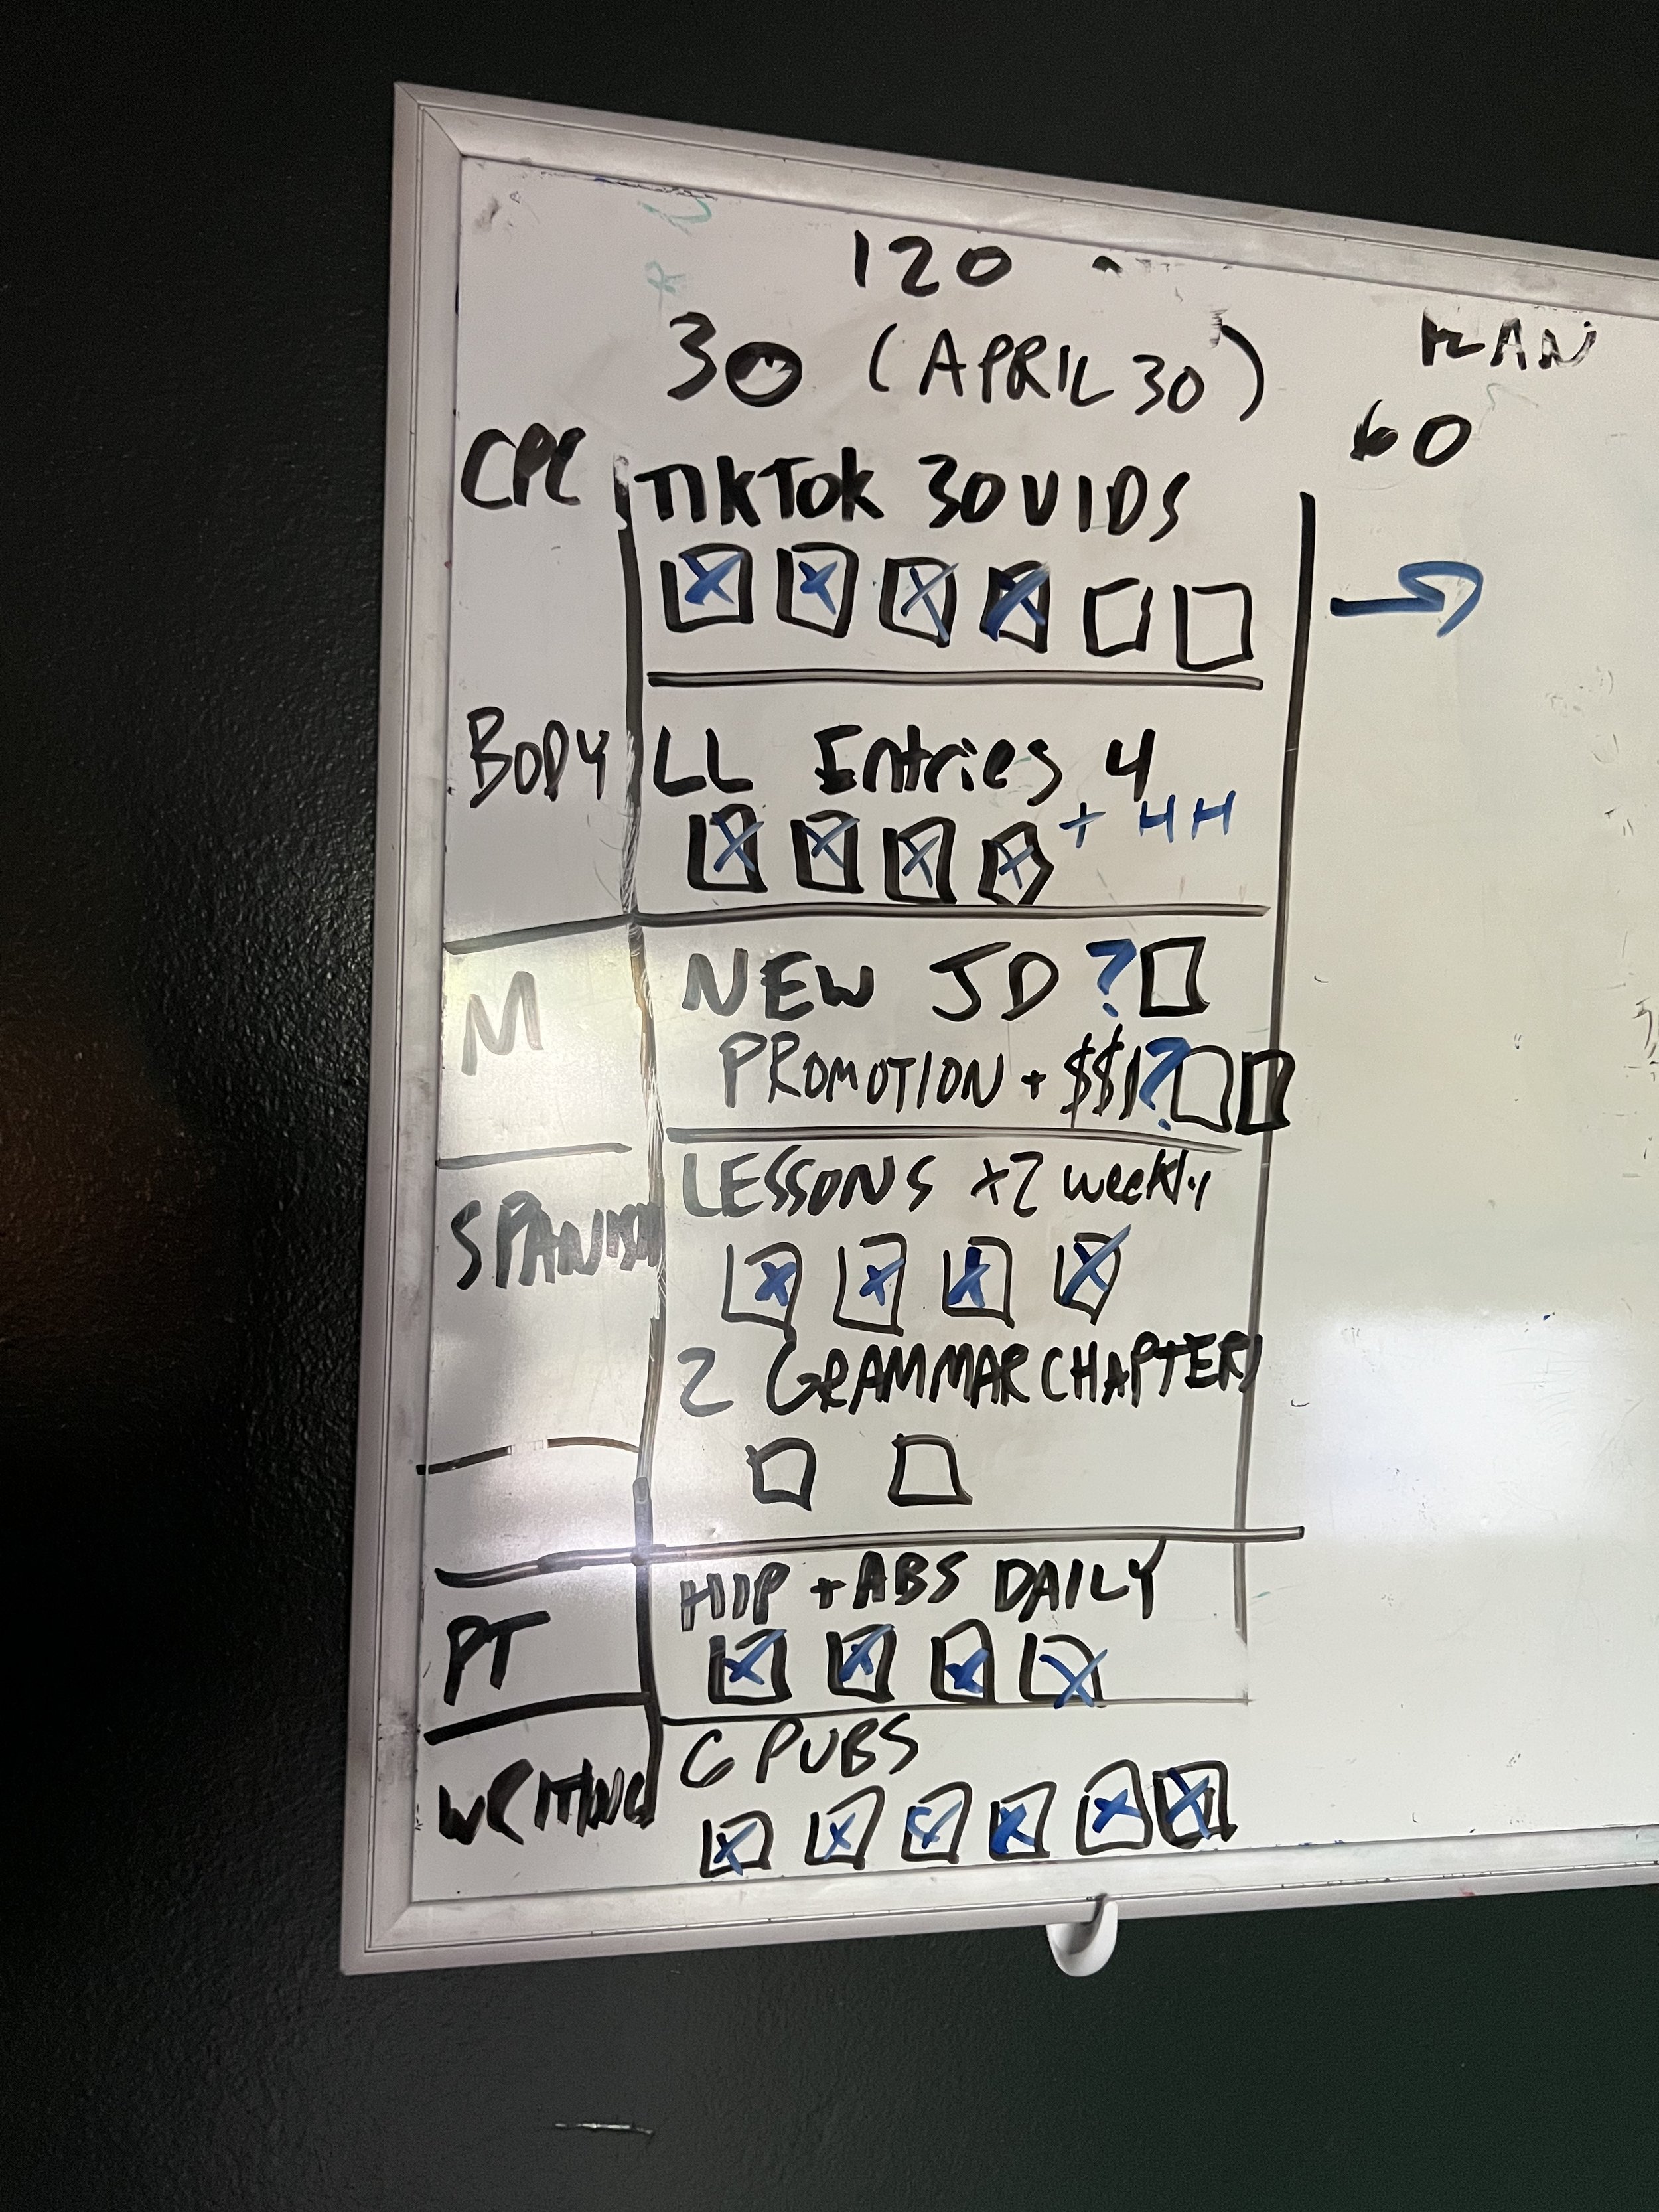 120
30 (APRIL 30)
PLAN
60
CPC TIKTOK 30 VIDS
BODY LL Entries 4
+ HH
M NEW JD ?
PROMOTION + $$$?
SPANISH LESSONS x2 weekly
2 GRAMMAR CHAPTERS
PT HIP + ABS DAILY
WRITING 6 PUBS